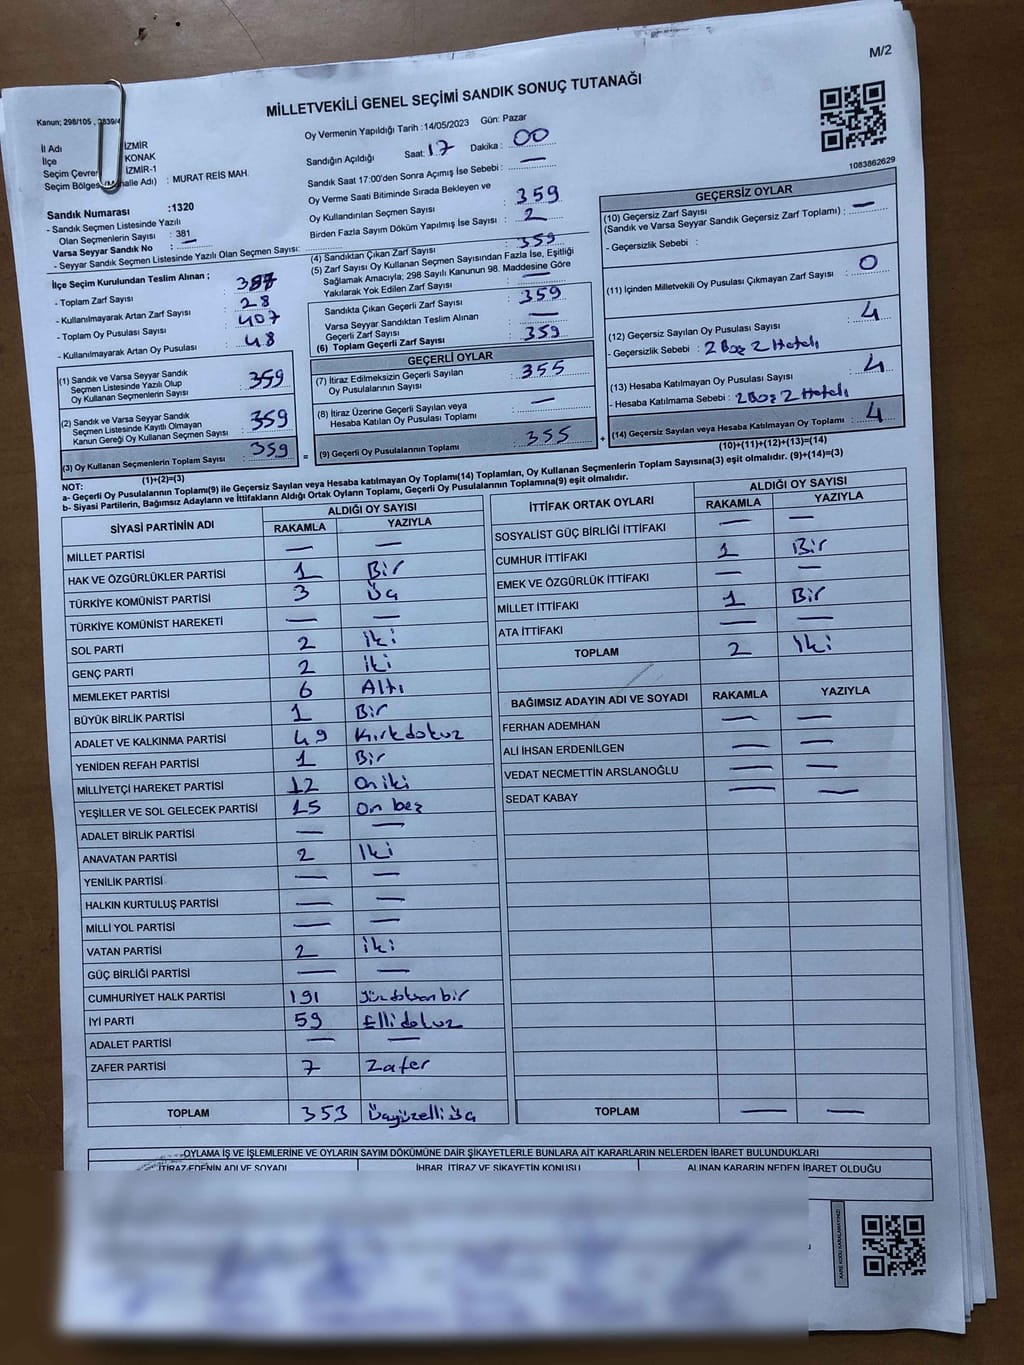 M/2
MİLLETVEKİLİ GENEL SEÇİMİ SANDIK SONUÇ TUTANAĞI
Kanun; 298/105 ,
İl Adı İZMİR
İlçe KONAK
Seçim Çevre İZMİR-1
Seçim Bölges alle Adı) : MURAT REİS MAH.
Sandık Numarası :1320
- Sandık Seçmen Listesinde Yazılı
Olan Seçmenlerin Sayısı : 381
Varsa Seyyar Sandık No : —
- Seyyar Sandık Seçmen Listesinde Yazılı Olan Seçmen Sayısı:
Oy Vermenin Yapıldığı Tarih :14/05/2023 Gün: Pazar
Sandığın Açıldığı Saat: 17 Dakika : 00
Sandık Saat 17:00'den Sonra Açımış İse Sebebi : —
Oy Verme Saati Bitiminde Sırada Bekleyen ve
Oy Kullandırılan Seçmen Sayısı : 359
Birden Fazla Sayım Döküm Yapılmış İse Sayısı : 2
(4) Sandıktan Çıkan Zarf Sayısı : 359
(5) Zarf Sayısı Oy Kullanan Seçmen Sayısından Fazla İse, Eşitliği
Sağlamak Amacıyla; 298 Sayılı Kanunun 98. Maddesine Göre
Yakılarak Yok Edilen Zarf Sayısı : —
1083862629
İlçe Seçim Kurulundan Teslim Alınan ;
- Toplam Zarf Sayısı :
- Kullanılmayarak Artan Zarf Sayısı : 28
- Toplam Oy Pusulası Sayısı : 407
- Kullanılmayarak Artan Oy Pusulası : 48
(1) Sandık ve Varsa Seyyar Sandık
Seçmen Listesinde Yazılı Olup
Oy Kullanan Seçmenlerin Sayısı : 359
(2) Sandık ve Varsa Seyyar Sandık
Seçmen Listesinde Kayıtlı Olmayan
Kanun Gereği Oy Kullanan Seçmen Sayısı : 359
(3) Oy Kullanan Seçmenlerin Toplam Sayısı : 359
(1)+(2)=(3)
Sandıkta Çıkan Geçerli Zarf Sayısı : 359
Varsa Seyyar Sandıktan Teslim Alınan
Geçerli Zarf Sayısı : —
(6) Toplam Geçerli Zarf Sayısı : 359
GEÇERLİ OYLAR
(7) İtiraz Edilmeksizin Geçerli Sayılan
Oy Pusulalarının Sayısı : 355
(8) İtiraz Üzerine Geçerli Sayılan veya
Hesaba Katılan Oy Pusulası Toplamı : —
(9) Geçerli Oy Pusulalarının Toplamı : 355
GEÇERSİZ OYLAR
(10) Geçersiz Zarf Sayısı
(Sandık ve Varsa Seyyar Sandık Geçersiz Zarf Toplamı) : —
- Geçersizlik Sebebi :
(11) İçinden Milletvekili Oy Pusulası Çıkmayan Zarf Sayısı : 0
(12) Geçersiz Sayılan Oy Pusulası Sayısı : 4
- Geçersizlik Sebebi : 2 Boş 2 Hatalı
(13) Hesaba Katılmayan Oy Pusulası Sayısı : 4
- Hesaba Katılmama Sebebi : 2 Boş 2 Hatalı
(14) Geçersiz Sayılan veya Hesaba Katılmayan Oy Toplamı : 4
(10)+(11)+(12)+(13)=(14)
NOT:
a- Geçerli Oy Pusulalarının Toplamı(9) ile Geçersiz Sayılan veya Hesaba katılmayan Oy Toplamı(14) Toplamları, Oy Kullanan Seçmenlerin Toplam Sayısına(3) eşit olmalıdır. (9)+(14)=(3)
b- Siyasi Partilerin, Bağımsız Adayların ve İttifakların Aldığı Ortak Oyların Toplamı, Geçerli Oy Pusulalarının Toplamına(9) eşit olmalıdır.
SİYASİ PARTİNİN ADI ALDIĞI OY SAYISI
RAKAMLA YAZIYLA
MİLLET PARTİSİ — —
HAK VE ÖZGÜRLÜKLER PARTİSİ 1 Bir
TÜRKİYE KOMÜNİST PARTİSİ 3 Üç
TÜRKİYE KOMÜNİST HAREKETİ — —
SOL PARTİ 2 iki
GENÇ PARTİ 2 iki
MEMLEKET PARTİSİ 6 Altı
BÜYÜK BİRLİK PARTİSİ 1 Bir
ADALET VE KALKINMA PARTİSİ 49 Kırkdokuz
YENİDEN REFAH PARTİSİ 1 Bir
MİLLİYETÇİ HAREKET PARTİSİ 12 On iki
YEŞİLLER VE SOL GELECEK PARTİSİ 15 on beş
ADALET BİRLİK PARTİSİ — —
ANAVATAN PARTİSİ 2 Iki
YENİLİK PARTİSİ — —
HALKIN KURTULUŞ PARTİSİ — —
MİLLİ YOL PARTİSİ — —
VATAN PARTİSİ 2 iki
GÜÇ BİRLİĞİ PARTİSİ — —
CUMHURİYET HALK PARTİSİ 191 yüzdoksanbir
İYİ PARTİ 59 Ellidokuz
ADALET PARTİSİ — —
ZAFER PARTİSİ 7 Zafer
TOPLAM 353 Üçyüzelliüç
İTTİFAK ORTAK OYLARI ALDIĞI OY SAYISI
RAKAMLA YAZIYLA
SOSYALİST GÜÇ BİRLİĞİ İTTİFAKI — —
CUMHUR İTTİFAKI 1 Bir
EMEK VE ÖZGÜRLÜK İTTİFAKI — —
MİLLET İTTİFAKI 1 Bir
ATA İTTİFAKI — —
TOPLAM 2 Iki
BAĞIMSIZ ADAYIN ADI VE SOYADI RAKAMLA YAZIYLA
FERHAN ADEMHAN — —
ALİ İHSAN ERDENİLGEN — —
VEDAT NECMETTİN ARSLANOĞLU — —
SEDAT KABAY — —
TOPLAM — —
OYLAMA İŞ VE İŞLEMLERİNE VE OYLARIN SAYIM DÖKÜMÜNE DAİR ŞİKAYETLERLE BUNLARA AİT KARARLARIN NELERDEN İBARET BULUNDUKLARI
İTİRAZ EDENİN ADI VE SOYADI İHBAR, İTİRAZ VE ŞİKAYETİN KONUSU ALINAN KARARIN NEDEN İBARET OLDUĞU
KARE KODU KARALAMAYINIZ!